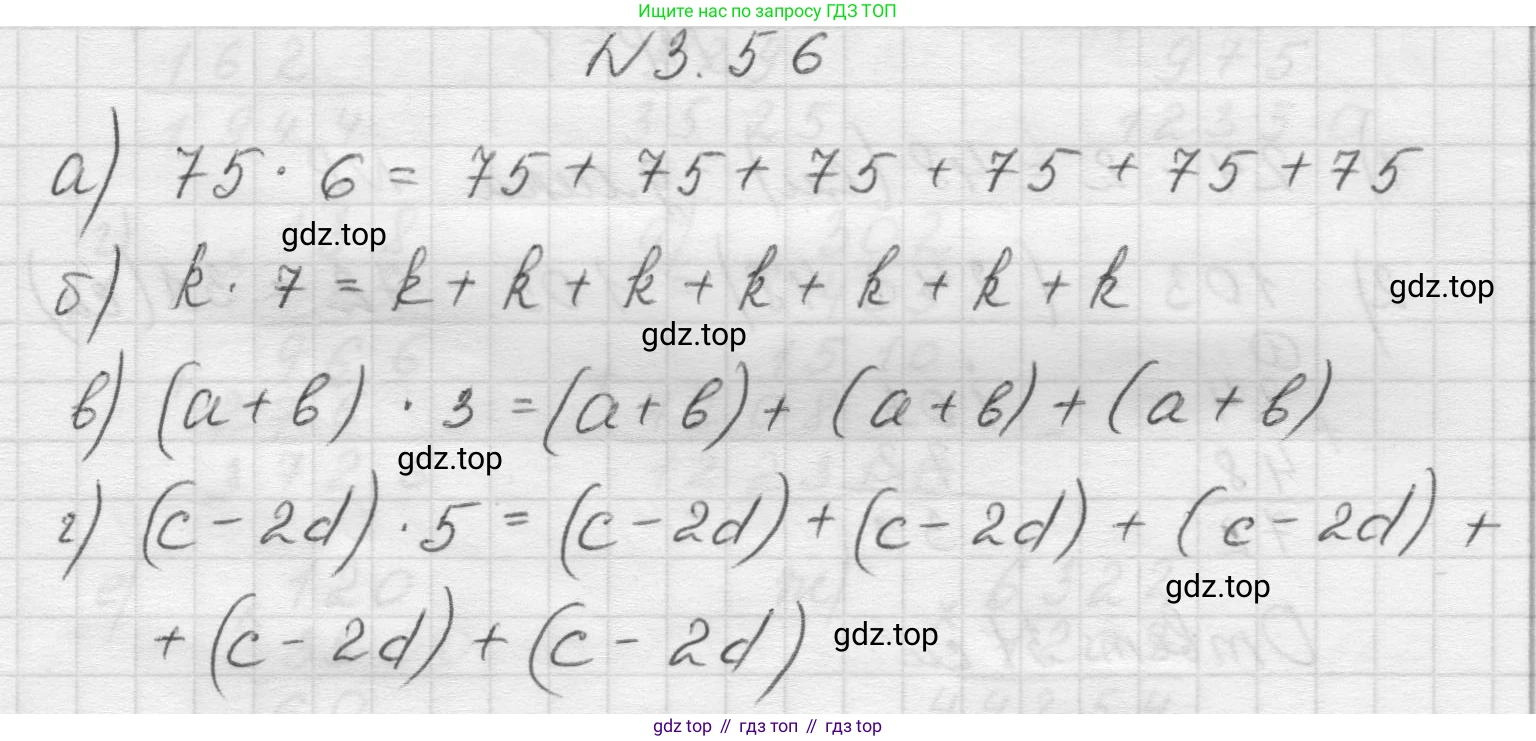 Ищите нас по запросу ГДЗ ТОП
№ 3.56
а) 75 · 6 = 75 + 75 + 75 + 75 + 75 + 75
gdz.top
б) k · 7 = k + k + k + k + k + k + k
gdz.top
gdz.top
в) (a + b) · 3 = (a + b) + (a + b) + (a + b)
gdz.top
г) (c - 2d) · 5 = (c - 2d) + (c - 2d) + (c - 2d) +
gdz.top
+ (c - 2d) + (c - 2d)
gdz.top
gdz top // гдз топ // гдз top